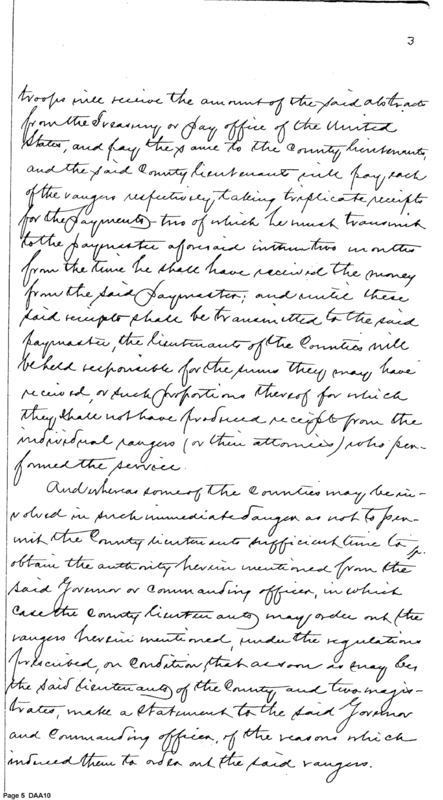 3
troops will receive the amount of the said abstracts
from the Treasury or pay office of the United
States, and pay the same to the County lieutenants,
and the said County lieutenants will pay each
of the rangers respectively, taking triplicate receipts
for the payments, two of which he must transmit
to the paymaster aforesaid within two months
from the time he shall have received the money
from the said paymaster; and until these
said receipts shall be transmitted to the said
paymaster, the lieutenants of the Counties will
be held responsible for the sums they may have
received, or such proportions thereof for which
they shall not have produced receipts from the
individual rangers (or their attornies) who per-
formed the service.
And whereas some of the Counties may be in-
volved in such immediate danger as not to per-
mit the County lieutenants sufficient time to
obtain the authority herein mentioned from the
said Governor or commanding officer, in which
case the County lieutenants may order out the
rangers herein mentioned, under the regulations
prescribed, on condition that as soon as may be,
the said lieutenants of the County and two magis-
trates, make a statement to the said Governor
and Commanding officer, of the reasons which
induced them to order out the said rangers.
Page 5 DAA10